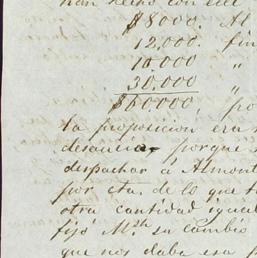 han hecho con ell
$8000. Al
12,000. fin
10000 "
30.000 "
$60000, po
la proposicion era s
desancia, porque
despachar á Almont
por cta. de lo que t
otra cantidad igual
fijo M. en cambio
que nos daba esa p